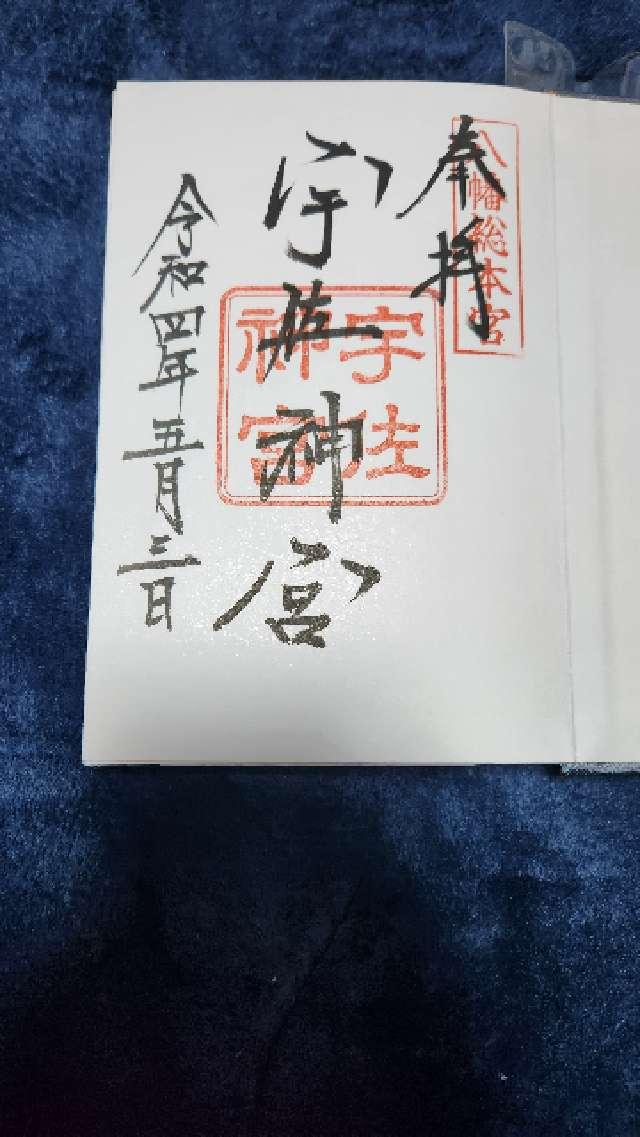 八幡総本宮
奉拝
宇佐神宮
宇佐
神宮
令和四年五月三日